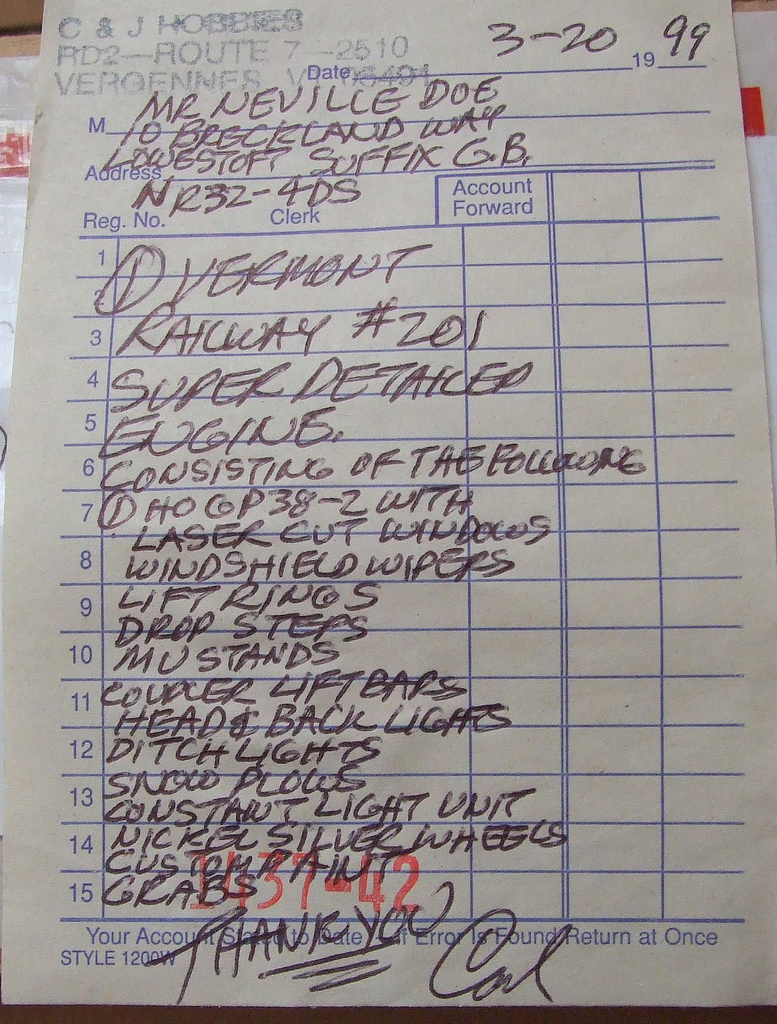 C & J HOBBIES
RD2—ROUTE 7 -2510
VERGENNES, VT 05491
Date 3-20 19 99
M MR NEVILLE DOE
10 BRECKLAND WAY
Address LOWESTOFT SUFFIX G.B.
NR32-4DS
Reg. No. Clerk Account Forward
1 ① VERMONT
2
3 RAILWAY #201
4 SUPER DETAILED
5 ENGINE.
6 CONSISTING OF THE FOLLOWING
7 ① HO GP38-2 WITH
LASER CUT WINDOWS
8 WINDSHIELD WIPERS
9 LIFT RINGS
DROP STEPS
10 MU STANDS
11 COUPLER LIFT BARS
HEAD & BACK LIGHTS
12 DITCH LIGHTS
SNOW PLOWS
13 CONSTANT LIGHT UNIT
14 NICKEL SILVER WHEELS
CUSTOM PAINT
15 GRABS
1437-42
THANK YOU
Your Account Stated to Date If Error Is Found Return at Once
STYLE 1200W
Carl